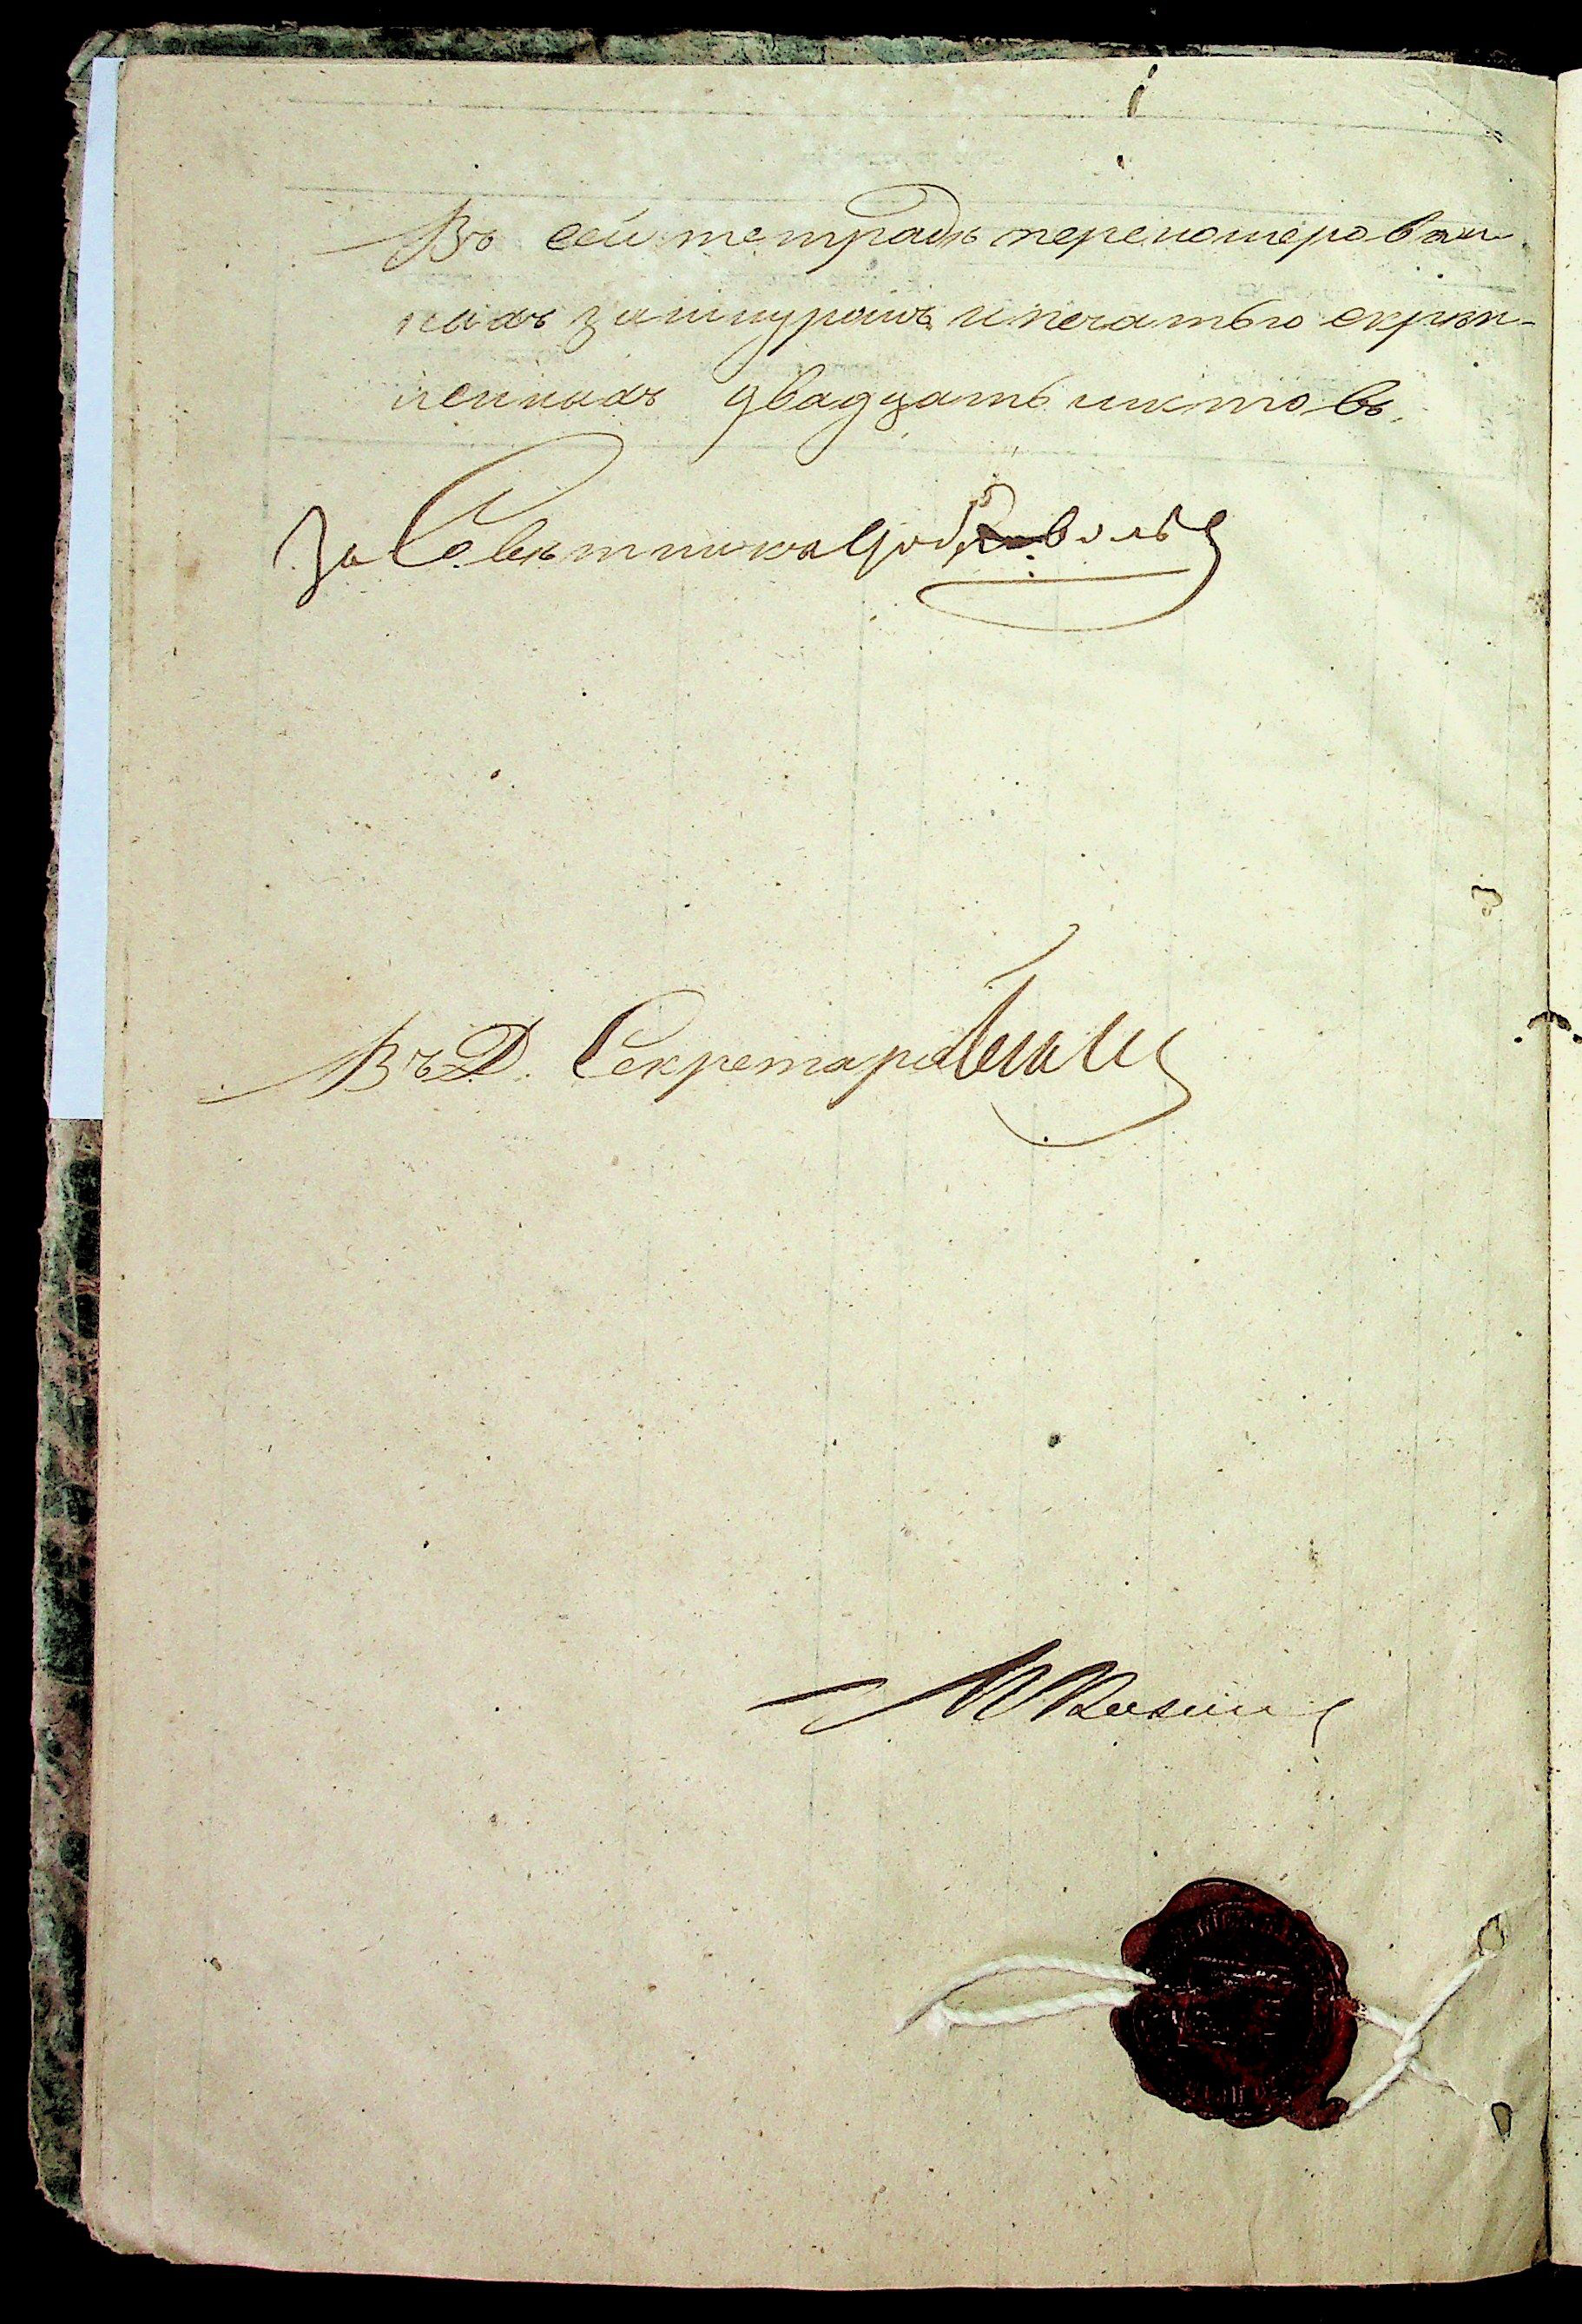 Въ сей тетрадѣ перенумерован-
ныхъ зашнурошъ и печатью скрѣп-
ленныхъ двадцать листовъ.
За Советника
Въ Д. Секретаря